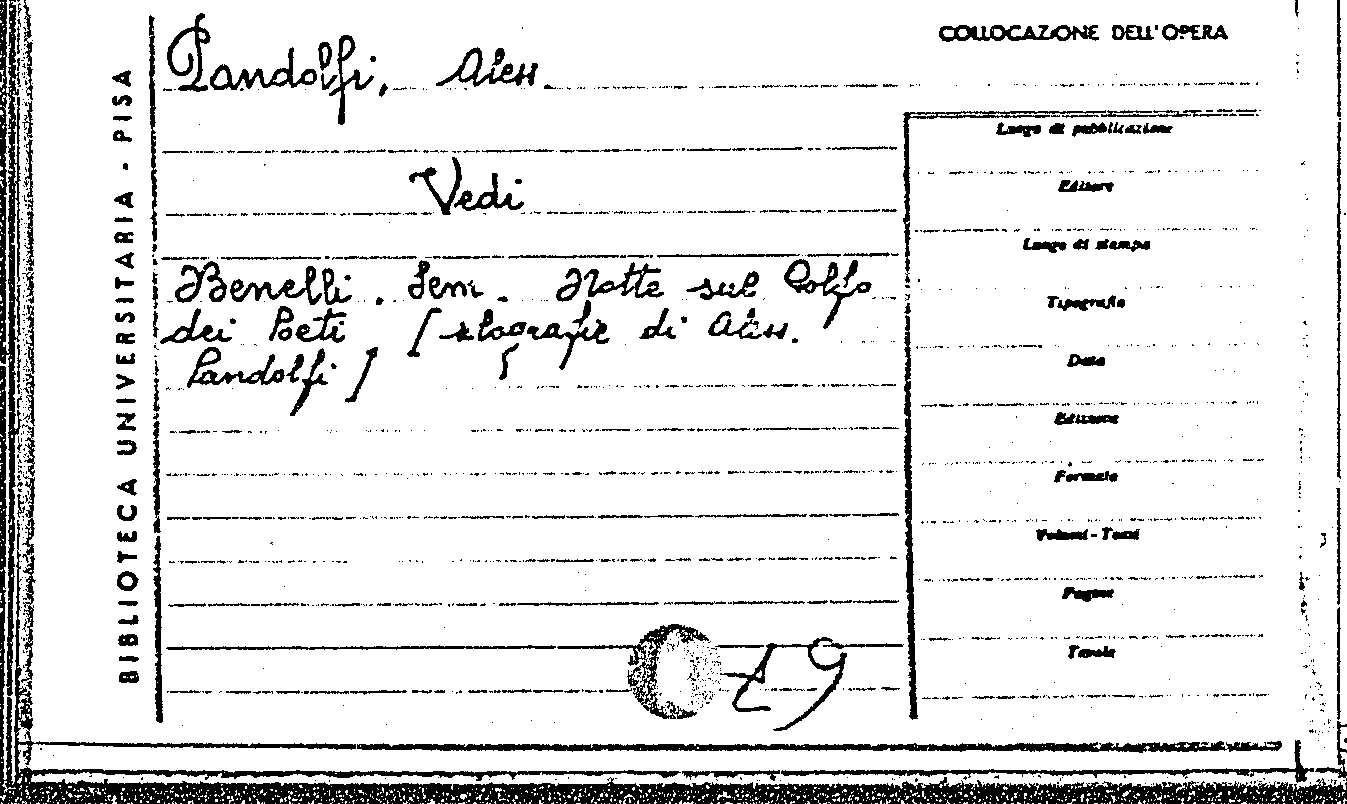 BIBLIOTECA UNIVERSITARIA - PISA
COLLOCAZIONE DELL'OPERA
Pandolfi, Aless.
Vedi
Benelli. Sem. Notte sul Golfo
dei Poeti [xilografie di Aless.
Pandolfi]
Luogo di pubblicazione
Editore
Luogo di stampa
Tipografia
Data
Edizione
Formato
Volumi - Tomi
Pagine
Tavole